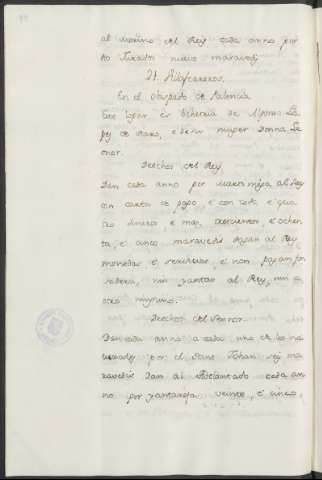 al merino del Rey cada anno por
los fueros nueve maravedis
21. Villafrareros.
En el obispado de Palencia
Este logar es Behetria de Alfonso Lo
pez de Haro, e de su muger Donna Le
onor.
Derechos del Rey
Dan cada anno por martiniega al Rey
con
dineros e mas e ochen
ta, e cinco maravedis al Rey
monedas e servicios, e non pagan fon
sadera, nin yantar al Rey, nin a
otro ninguno.
Derechos del Sennor
Dan cada anno a cada uno de los na
turales por el Sant Johan seis ma
ravedis Dan al Adelantado cada an
no por yantareja veinte, e cinco,